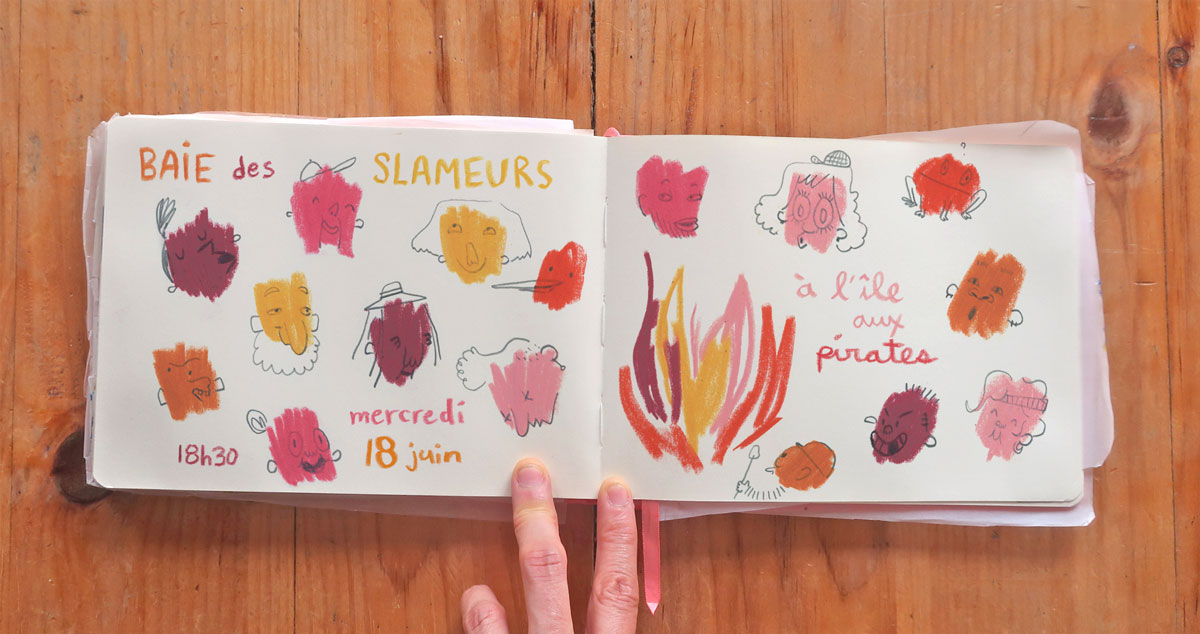 BAIE des SLAMEURS
mercredi
18 juin
18h30
à l'île
aux
pirates
?